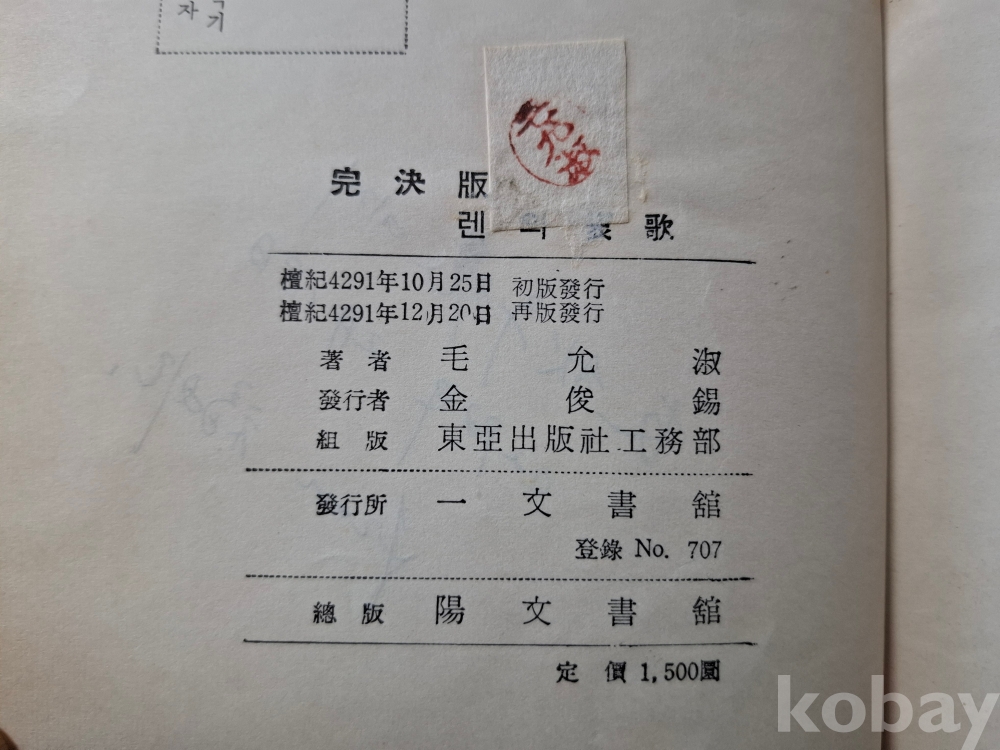 자 기
完決版
렌의 哀歌
檀紀4291年10月25日 初版發行
檀紀4291年12月20日 再版發行
著者 毛允淑
發行者 金俊錫
組版 東亞出版社工務部
發行所 一文書舘
登錄 No. 707
總版 陽文書舘
定價 1,500圜
kobay